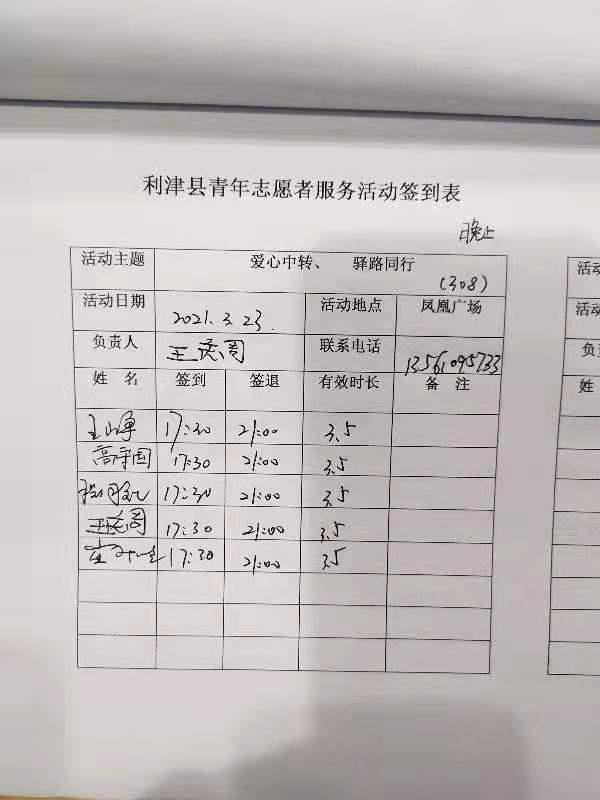 利津县青年志愿者服务活动签到表
晚上
活动主题 爱心中转、 驿路同行 (308)
活动日期 2021.3.23. 活动地点 凤凰广场
负责人 联系电话 13561095733
姓 名 签到 签退 有效时长 备 注
17:30 21:00 3.5
高守国 17:30 21:00 3.5
17:30 21:00 3.5
17:30 21:00 3.5
17:30 21:00 3.5
活动
活动
负责
姓